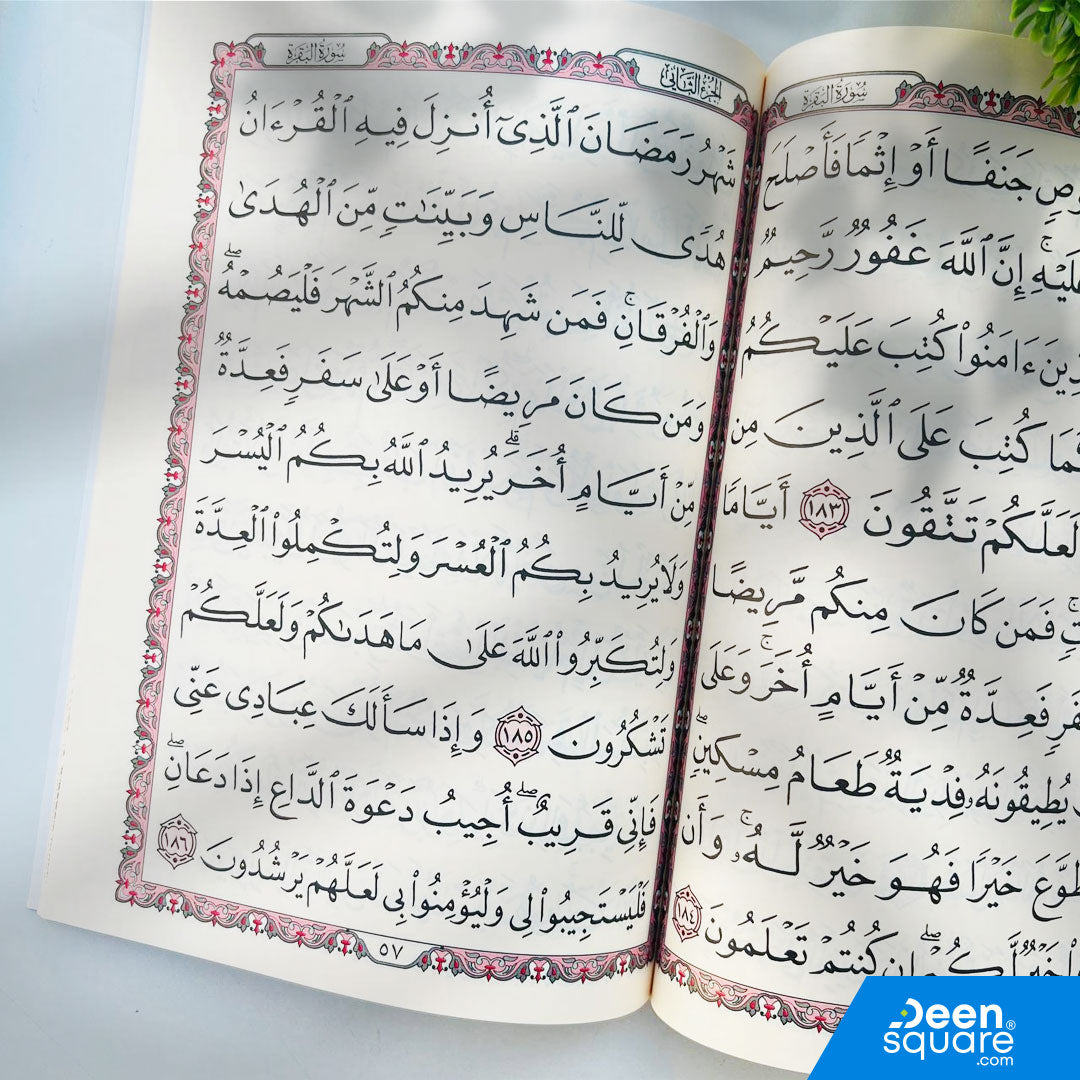 سُورَةُ البَقَرَةِ
جَنَفًا أَوْ إِثْمًا فَأَصْلَحَ
عَلَيْهِ ۚ إِنَّ ٱللَّهَ غَفُورٌ رَّحِيمٌ
ءَامَنُوا۟ كُتِبَ عَلَيْكُمُ
كُتِبَ عَلَى ٱلَّذِينَ مِن
لَعَلَّكُمْ تَتَّقُونَ ١٨٣ أَيَّامًا
فَمَن كَانَ مِنكُم مَّرِيضًا
فَعِدَّةٌ مِّنْ أَيَّامٍ أُخَرَ ۚ وَعَلَى
يُطِيقُونَهُۥ فِدْيَةٌ طَعَامُ مِسْكِينٍ ۖ
خَيْرًا فَهُوَ خَيْرٌ لَّهُۥ ۚ وَأَن
خَيْرٌ لَّكُمْ ۖ إِن كُنتُمْ تَعْلَمُونَ ١٨٤
الجزء الثاني
سُورَةُ البَقَرَةِ
شَهْرُ رَمَضَانَ ٱلَّذِىٓ أُنزِلَ فِيهِ ٱلْقُرْءَانُ
هُدًى لِّلنَّاسِ وَبَيِّنَٰتٍ مِّنَ ٱلْهُدَىٰ
وَٱلْفُرْقَانِ ۚ فَمَن شَهِدَ مِنكُمُ ٱلشَّهْرَ فَلْيَصُمْهُ ۖ
وَمَن كَانَ مَرِيضًا أَوْ عَلَىٰ سَفَرٍ فَعِدَّةٌ
مِّنْ أَيَّامٍ أُخَرَ ۗ يُرِيدُ ٱللَّهُ بِكُمُ ٱلْيُسْرَ
وَلَا يُرِيدُ بِكُمُ ٱلْعُسْرَ وَلِتُكْمِلُوا۟ ٱلْعِدَّةَ
وَلِتُكَبِّرُوا۟ ٱللَّهَ عَلَىٰ مَا هَدَىٰكُمْ وَلَعَلَّكُمْ
تَشْكُرُونَ ١٨٥ وَإِذَا سَأَلَكَ عِبَادِى عَنِّى
فَإِنِّى قَرِيبٌ ۖ أُجِيبُ دَعْوَةَ ٱلدَّاعِ إِذَا دَعَانِ ۖ
فَلْيَسْتَجِيبُوا۟ لِى وَلْيُؤْمِنُوا۟ بِى لَعَلَّهُمْ يَرْشُدُونَ ١٨٦
٥٧
Deen
square®
.com